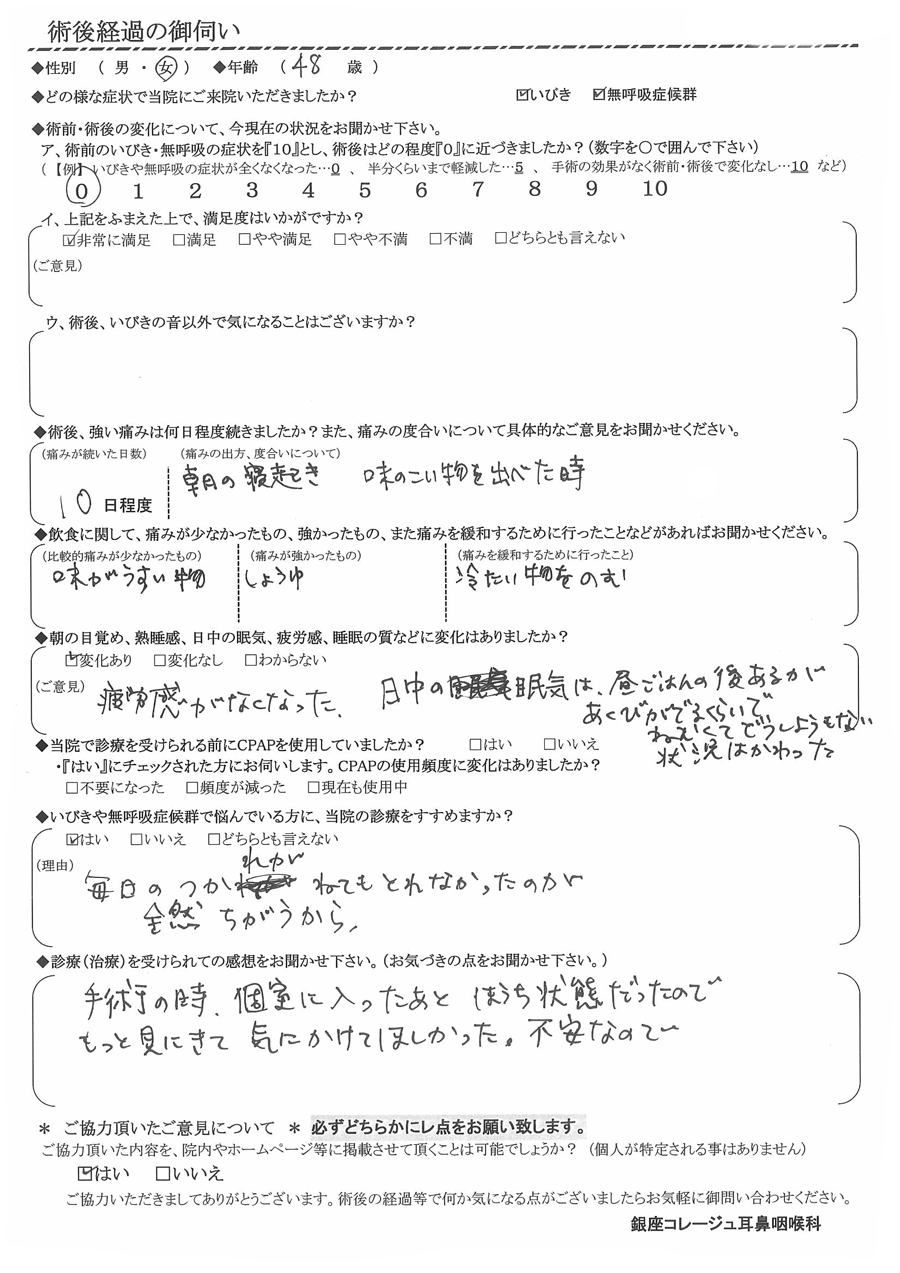 術後経過の御伺い
◆性別 （ 男 ・ 女 ） ◆年齢 （ 48 歳 ）
◆どの様な症状で当院にご来院いただきましたか？ ☑いびき ☑無呼吸症候群
◆術前・術後の変化について、今現在の状況をお聞かせ下さい。
ア、術前のいびき・無呼吸の症状を『10』とし、術後はどの程度『0』に近づきましたか？（数字を○で囲んで下さい）
（【例】いびきや無呼吸の症状が全くなくなった…0 、 半分くらいまで軽減した…5 、 手術の効果がなく術前・術後で変化なし…10 など）
0 1 2 3 4 5 6 7 8 9 10
イ、上記をふまえた上で、満足度はいかがですか？
☑非常に満足 □満足 □やや満足 □やや不満 □不満 □どちらとも言えない
（ご意見）
ウ、術後、いびきの音以外で気になることはございますか？
◆術後、強い痛みは何日程度続きましたか？また、痛みの度合いについて具体的なご意見をお聞かせください。
（痛みが続いた日数） （痛みの出方、度合いについて）
朝の寝起き 味のこい物を出べた時
10 日程度
◆飲食に関して、痛みが少なかったもの、強かったもの、また痛みを緩和するために行ったことなどがあればお聞かせください。
（比較的痛みが少なかったもの） （痛みが強かったもの） （痛みを緩和するために行ったこと）
味がうすい物 しょうゆ 冷たい物をのむ
◆朝の目覚め、熟睡感、日中の眠気、疲労感、睡眠の質などに変化はありましたか？
☑変化あり □変化なし □わからない
（ご意見）
疲労感がなくなった、 日中の眠気は、昼ごはんの後あるが
あくびがでるくらいで
ねむくてどうしようもない
状況はかわった
◆当院で診療を受けられる前にCPAPを使用していましたか？ □はい □いいえ
・『はい』にチェックされた方にお伺いします。CPAPの使用頻度に変化はありましたか？
□不要になった □頻度が減った □現在も使用中
◆いびきや無呼吸症候群で悩んでいる方に、当院の診療をすすめますか？
☑はい □いいえ □どちらとも言えない
（理由）
毎日のつかれが ねてもとれなかったのが
全然 ちがうから、
◆診療（治療）を受けられての感想をお聞かせ下さい。（お気づきの点をお聞かせ下さい。）
手術の時、個室に入ったあと ほうち状態だったので
もっと見にきて 気にかけてほしかった。不安なので
＊ ご協力頂いたご意見について ＊ 必ずどちらかにレ点をお願い致します。
ご協力頂いた内容を、院内やホームページ等に掲載させて頂くことは可能でしょうか？ （個人が特定される事はありません）
☑はい □いいえ
ご協力いただきましてありがとうございます。術後の経過等で何か気になる点がございましたらお気軽に御問い合わせください。
銀座コレージュ耳鼻咽喉科